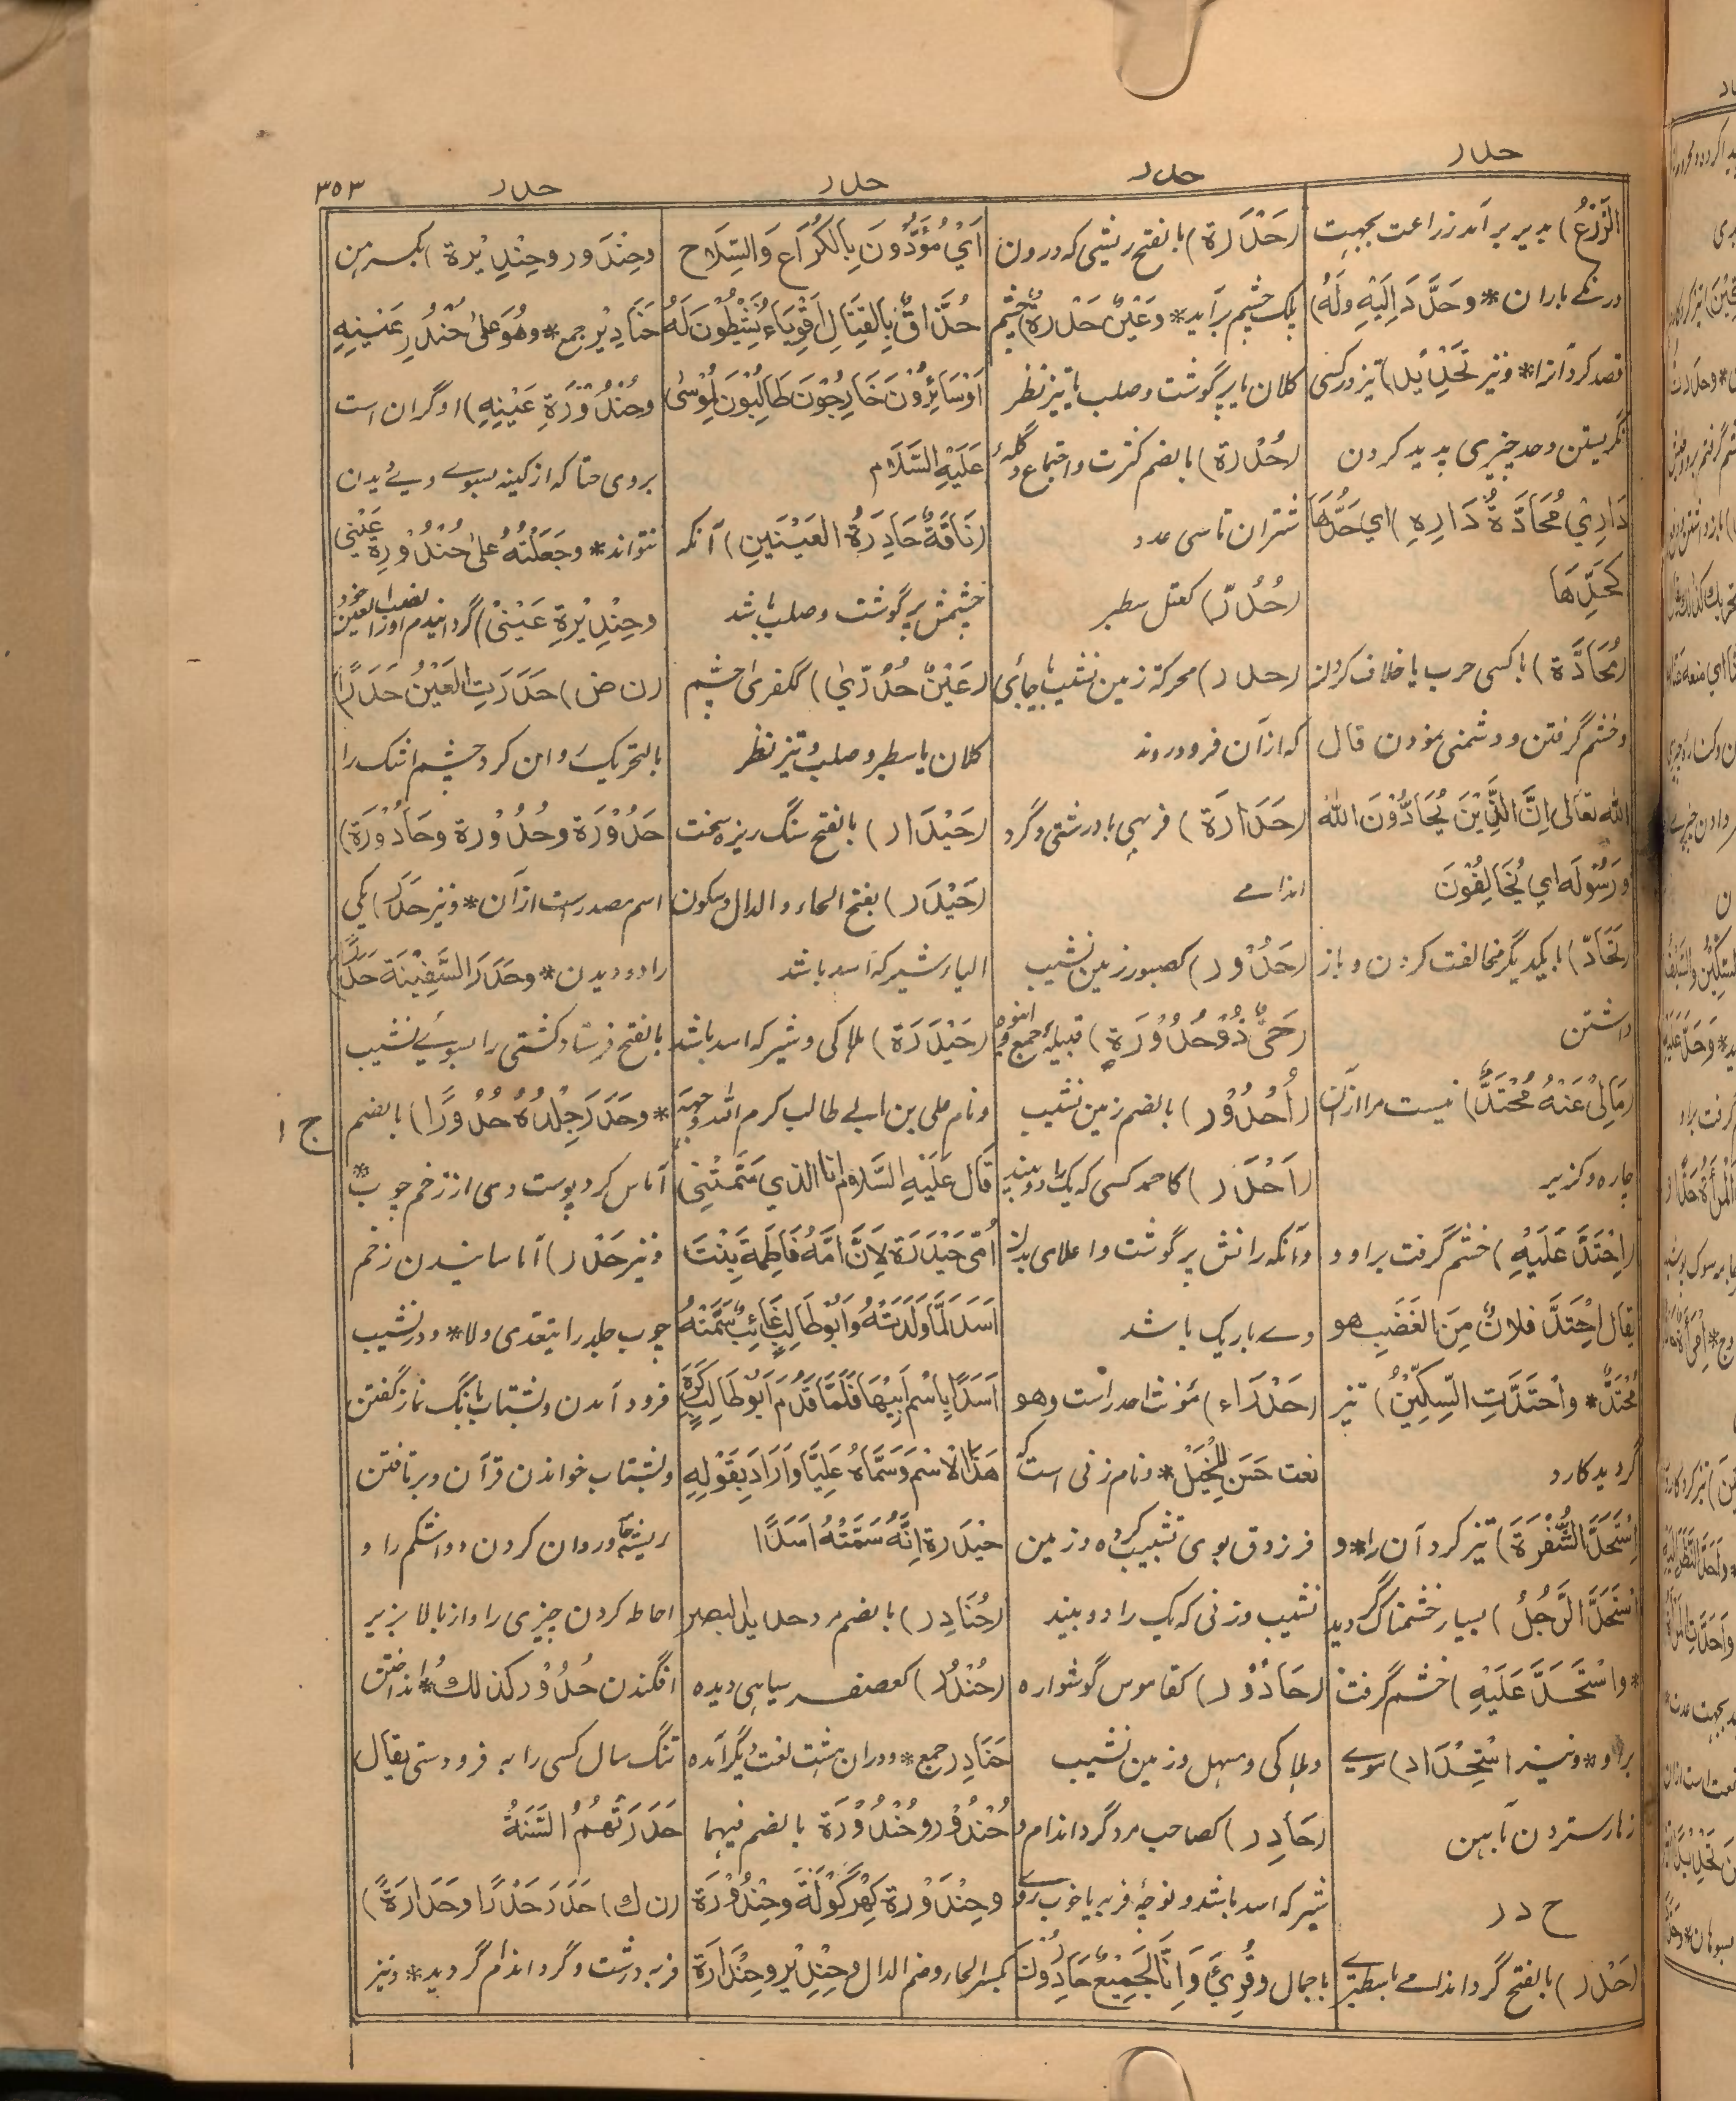 حدر
حدر
حدر
حدر
٣٥٣
الزَّرْعُ) بدیر برآمد زراعت بجہت
درنگے باران * وحَدَّدَ اِلَيْهِ ولَهُ)
قصد کرد آنرا * ونیز تَحْدِيْد) تیز در کسی
نگریستن وحد چیزی پدید کردن
دَارِيْ مُحَادَّةُ دَارِهِ) اي حَدُّهَا
كَحَدِّهَا
(مُحَادَّة) با کسی حرب یا خلاف کردن
وخشم گرفتن ودشمنی نمودن قال
الله تعَالى اِنَّ الَّذِيْنَ يُحَادُّوْنَ اللهَ
وَرَسُوْلَه اي يُخَالِفُوْنَ
(تَحَادّ) با یکدیگر مخالفت کردن وباز
داشتن
(مَالِيْ عَنْهُ مُحْتَدٌّ) نیست مرا ازآن
چاره وگزیر
(اِحْتَدَّ عَلَيْهِ) خشم گرفت براو و
يقال اِحْتَدَّ فلانٌ مِنَ الغَضَبِ هو
مُحْتَدٌّ * واحْتَدَّتِ السِّكِّيْنُ) تیز
گردید کارد
اِسْتَحَدَّ الشَّفْرَةَ) تیز کرد آن را * و
اسْتَحَدَّ الرَّجُلُ) بسیار خشمناک گردید
* واسْتَحَدَّ عَلَيْهِ) خشم گرفت
براو * ونیز اسْتِحْدَاد) موے
زہار ستردن بآہن
ح د ر
(حَدْر) بالفتح گرد اندامے باسطبرے
(حَدْرَة) بالفتح ریشی که درون
پلک چشم برآید * وعَيْنٌ حَدْرَةٌ) چشم
کلان یا پرگوشت وصلب یا تیز نظر
(حُدْرَة) بالضم کثرت واجتماع وگلهٔ
شتران تا سی عدد
(حُدُرّ) کعتل سطبر
(حدر) محرکة زمین نشیب یا جائی
که ازآن فرود روند
(حَدَارَة) فربہی با درشتی وگرد
اندامے
(حَدُوْر) کصبور زمین نشیب
(حَيٌّ ذُوْ حُدُوْرَةٍ) قبیلهٔ جمع
(أُحْدُوْر) بالضم زمین نشیب
(اَحْدَر) کاحمد کسی که یک را دو بیند
وآنکه رانش پرگوشت واعلای بدن
وے باریک باشد
(حَدْرَاء) مؤنث احدر است وهو
نعت حَسَن لِلْخَيْل * ونام زنی است که
فرزدق بوی تشبیب کرده وزمین
نشیب وزنی که یک را دو بیند
(حَادُوْر) کقاموس گوشواره
وہلاکی ومسہل وزمین نشیب
(حَادِر) کصاحب مرد گرد اندام و
شیر که اسد باشد ونوچهٔ فربه یا خوب روے
باجمال وقُرِئَ وَاِنَّا لَجَمِيْعٌ حَادِرُوْنَ
اَيْ مُؤَدُّوْنَ بِالكُرَاعِ وَالسِّلَاح
حُذَّاقٌ بِالقِتَالِ اَقْوِيَاء نَشِيْطُوْنَ لَهُ
اَوْسَائِرُوْنَ خَارِجُوْنَ طَالِبُوْنَ لِمُوْسٰى
عَلَيْهِ السَّلَام
(نَاقَةٌ حَادِرَةُ العَيْنَيْنِ) آنکه
چشمش پرگوشت وصلب باشد
(عَيْنٌ حُدُرّىٰ) ککفرّیٰ چشم
کلان یا سطبر وصلب وتیز نظر
(حَيْدَار) بالفتح سنگ ریزه سخت
(حَيْدَر) بفتح الحاء والدال وسکون
الیاء شیر که اسد باشد
(حَيْدَرَة) ہلاکی وشیر که اسد باشد
ونام علی بن ابی طالب کرم الله وجہه
قَال عَلَيْهِ السَّلَام انا الذي سَمَّتْنِي
اُمّى حَيْدَرَة لِاَنَّ اُمَّهُ فَاطِمَةَ بِنْتَ
اَسَد لَمَّا وَلَدَتْهُ وَاَبُوْ طَالِبٍ غَائِبٌ سَمَّتْهُ
اَسَدًا بِاسْمِ اَبِيْهَا فَلَمَّا قَدِمَ اَبُوْ طَالِبٍ كَرِهَ
هٰذَا الاسْمَ وَسَمَّاهُ عَلِيًّا وَاَرَادَ بِقَوْلِهِ
حيْدَرة اِنَّهُ سَمَّتْهُ اَسَدًا
(حُنَادِر) بالضم مرد حدید البصر
(حُنْدُر) کعصفر سیاہی دیده
حَنَادِر جمع * ودران ہشت لغت دیگر آمده
حُنْدُوْر وحُنْدُوْرَة بالضم فیہما
وحِنْدَوْرة كهِرْكَوْلَة وحِنْدُوْرَة
بکسر الحاء وضم الدال وحِنْدِيْر وحِنْدَارَة
وحِنْدَوْر وحِنْدِيْرَة بکسرہن
حَنَادِيْر جمع * وهُوَ عَلىٰ حُنْدُرِ عَيْنِهِ
وحُنْدُوْرَةِ عَيْنِهِ) او گران است
بروی حتا که از کینه بسوے وے دیدن
نتواند * وجَعَلْتُهُ عَلىٰ حُنْدُوْرَةِ عَيْنِي
وحِنْدِيْرَةِ عَيْنِيْ) گردانیدم اورا نصب العین خود
(ن ض) حَدَرَتِ العَيْنُ حَدَرًا)
بالتحریک روان کرد چشم اشک را
حَدُوْرَة وحُدُوْرة وحَادُوْرَة)
اسم مصدر است ازآن * ونیز حَدَر) یکی
را دو دیدن * وحَدَرَ السَّفِيْنَةَ حَدْرًا)
بالفتح فرستاد کشتی را بسوے نشیب
* وحَدَرَ جِلْدُهُ حُدُوْرًا) بالضم
آماس کرد پوست وی از زخم چوب *
ونیز حَدْر) آماسانیدن زخم
چوب جلد را یتعدی ولا * ودر نشیب
فرود آمدن وبشتاب بانگ نماز گفتن
وبشتاب خواندن قرآن وبرتافتن
ریشه جامه وروان کردن دوا شکم را و
احاطه کردن چیزی را واز بالا بزیر
افگندن حُدُوْر کذلك * انداختن
تنگ سال کسی را به فرودستی یقال
حَدَرَتْهُمُ السَّنَةُ
(ن ك) حَدَرَ حَدْرًا وحَدَارَةً)
فربه ودرشت وگرد اندام گردید * ونیز
ج ١